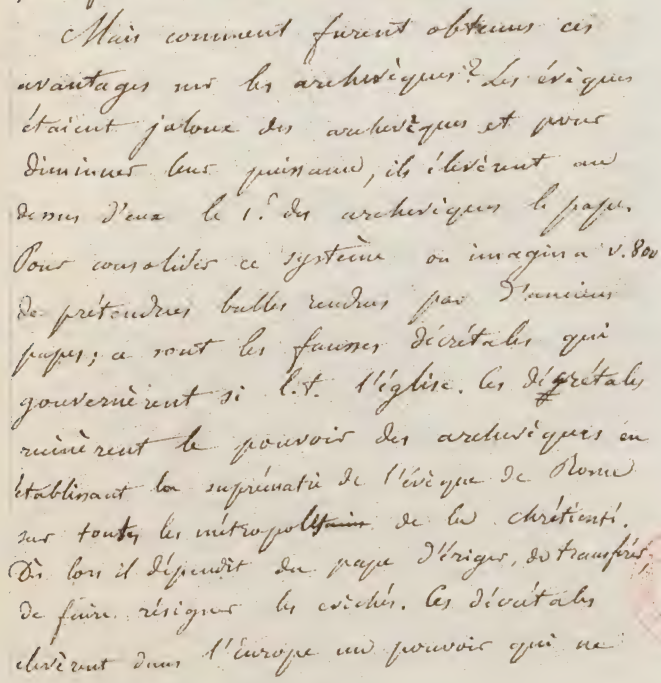 Mais comment furent obtenus ces
avantages sur les archevêques? Les évêques
étaient jaloux des archevêques et pour
diminuer leur puissance, ils élevèrent au
dessus d'eux le 1.er des archevêques le pape.
Pour consolider ce système on imagina v. 800
de prétendues bulles rendues par d'anciens
papes; ce sont les fausses décrétales qui
gouvernèrent si l.t. l'église. Ces décrétales
ruinèrent le pouvoir des archevêques en
établissant la suprématie de l'évêque de Rome
sur toutes les métropoles de la chrétienté.
Dès lors il dépendit du pape d'ériger, de transférer,
de faire résigner les évêchés. Ces décrétales
élevèrent dans l'Europe un pouvoir qui ne